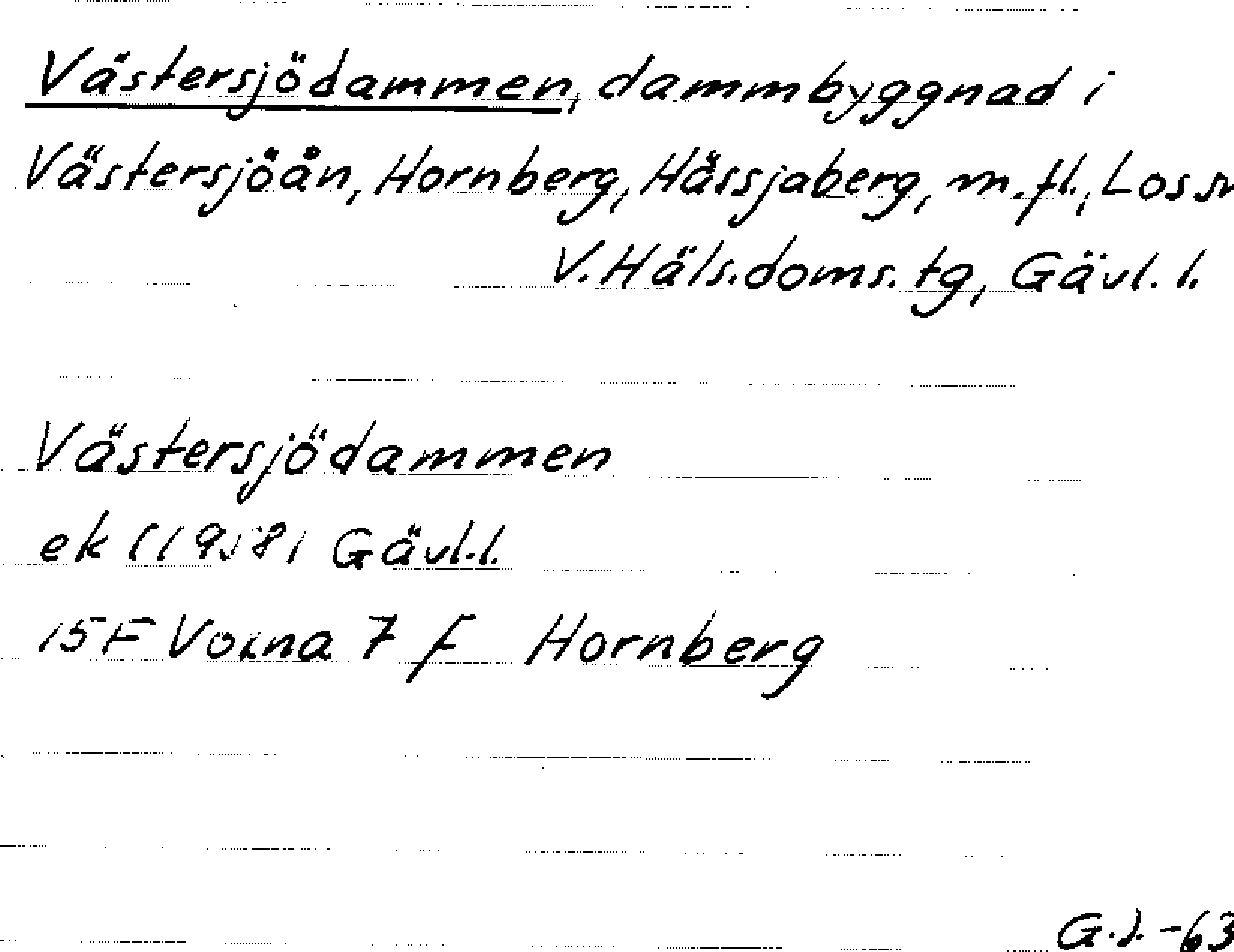 Västersjödammen, dammbyggnad i
Västersjöån, Hornberg, Hässjaberg, m.fl., Los sn
V. Häls. doms. tg, Gävl. l.
Västersjödammen
ek (1958) Gävl. l.
15F Voxna 7 f Hornberg
G.J. -63